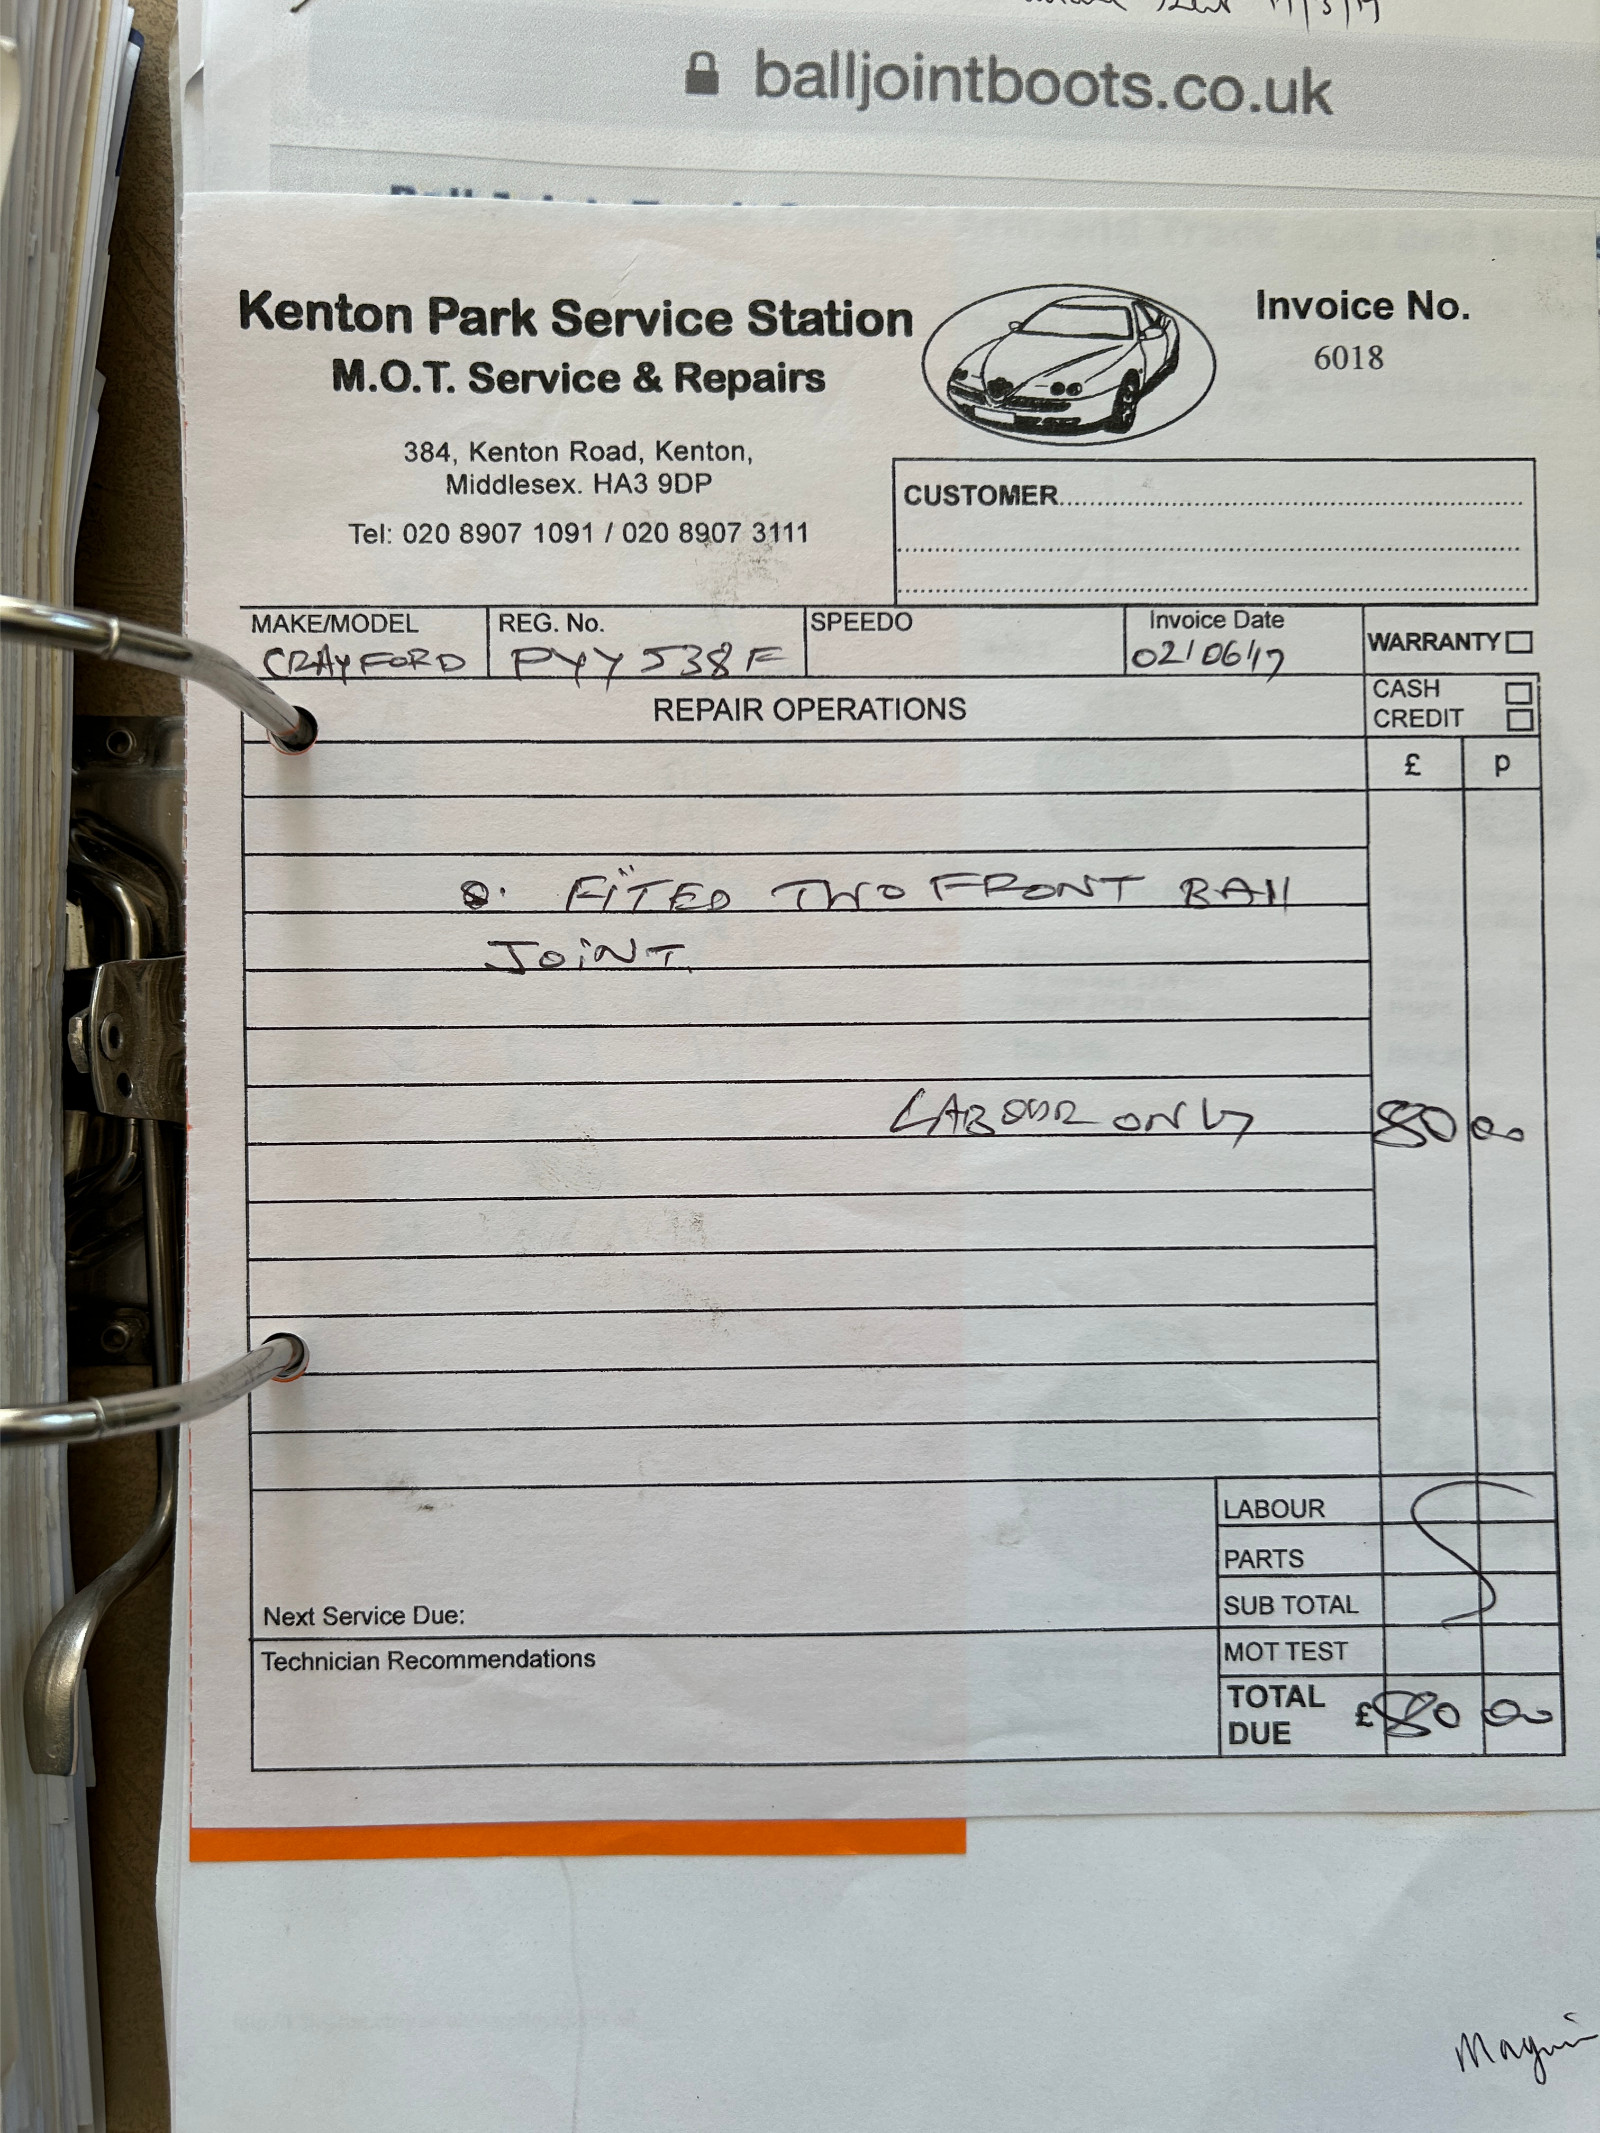 balljointboots.co.uk
Kenton Park Service Station
M.O.T. Service & Repairs
Invoice No.
6018
384, Kenton Road, Kenton,
Middlesex. HA3 9DP
Tel: 020 8907 1091 / 020 8907 3111
CUSTOMER
MAKE/MODEL REG. No. SPEEDO Invoice Date WARRANTY
CRAYFORD PYY 538F 02/06/17
REPAIR OPERATIONS CASH
CREDIT
£ p
FITED TWO FRONT BALL
JOINT.
LABOUR ONLY 80 00
LABOUR
PARTS
Next Service Due: SUB TOTAL
Technician Recommendations MOT TEST
TOTAL DUE £80 00